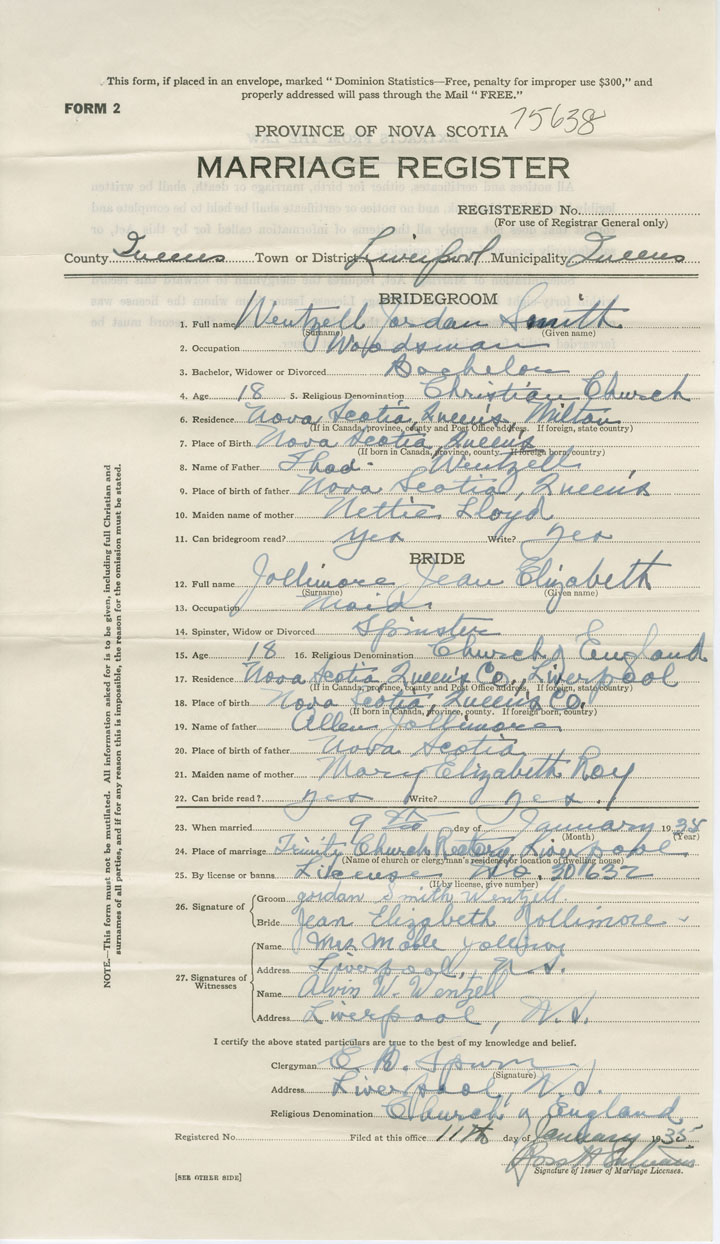 This form, if placed in an envelope, marked " Dominion Statistics—Free, penalty for improper use $300," and
properly addressed will pass through the Mail " FREE."
FORM 2
PROVINCE OF NOVA SCOTIA 75638
MARRIAGE REGISTER
REGISTERED No.
(For use of Registrar General only)
County Queens Town or District Liverpool Municipality Queens
BRIDEGROOM
1. Full name Wentzell Jordan Smith
(Surname) (Given name)
2. Occupation Woodsman
3. Bachelor, Widower or Divorced Bachelor
4. Age 18 5. Religious Denomination Christian Church
6. Residence Nova Scotia, Queen's, Milton
(If in Canada, province, county and Post Office address. If foreign, state country)
7. Place of Birth Nova Scotia, Queen's
(If born in Canada, province, county. If foreign born, country)
8. Name of Father Thad. Wentzell
9. Place of birth of father Nova Scotia, Queen's
10. Maiden name of mother Nettie Lloyd
11. Can bridegroom read? Yes Write? Yes
BRIDE
12. Full name Jollimore Jean Elizabeth
(Surname) (Given name)
13. Occupation Maid
14. Spinster, Widow or Divorced Spinster
15. Age 18 16. Religious Denomination Church of England
17. Residence Nova Scotia, Queen's Co., Liverpool
(If in Canada, province, county and Post Office address. If foreign, state country)
18. Place of birth Nova Scotia, Queen's Co.
(If born in Canada, province, county. If foreign born, country)
19. Name of father Allen Jollimore
20. Place of birth of father Nova Scotia
21. Maiden name of mother Mary Elizabeth Roy
22. Can bride read? yes Write? yes.
23. When married 9th day of January 1935
(Month) (Year)
24. Place of marriage Trinity Church Rectory, Liverpool
(Name of church or clergyman's residence or location of dwelling house)
25. By license or banns License No. 301632
(If by license, give number)
26. Signature of Groom Jordan Smith Wentzell.
Bride Jean Elizabeth Jollimore
27. Signatures of Witnesses Name Mrs Mable
Address Liverpool, N.S.
Name Alvin W. Wentzell
Address Liverpool, N.S.
I certify the above stated particulars are true to the best of my knowledge and belief.
Clergyman E. B. Spurr
(Signature)
Address Liverpool, N.S.
Religious Denomination Church of England
Registered No. Filed at this office 11th day of January 1935
Signature of Issuer of Marriage Licenses.
[SEE OTHER SIDE]
NOTE.—This form must not be mutilated. All information asked for is to be given, including full Christian and
surnames of all parties, and if for any reason this is impossible, the reason for the omission must be stated.